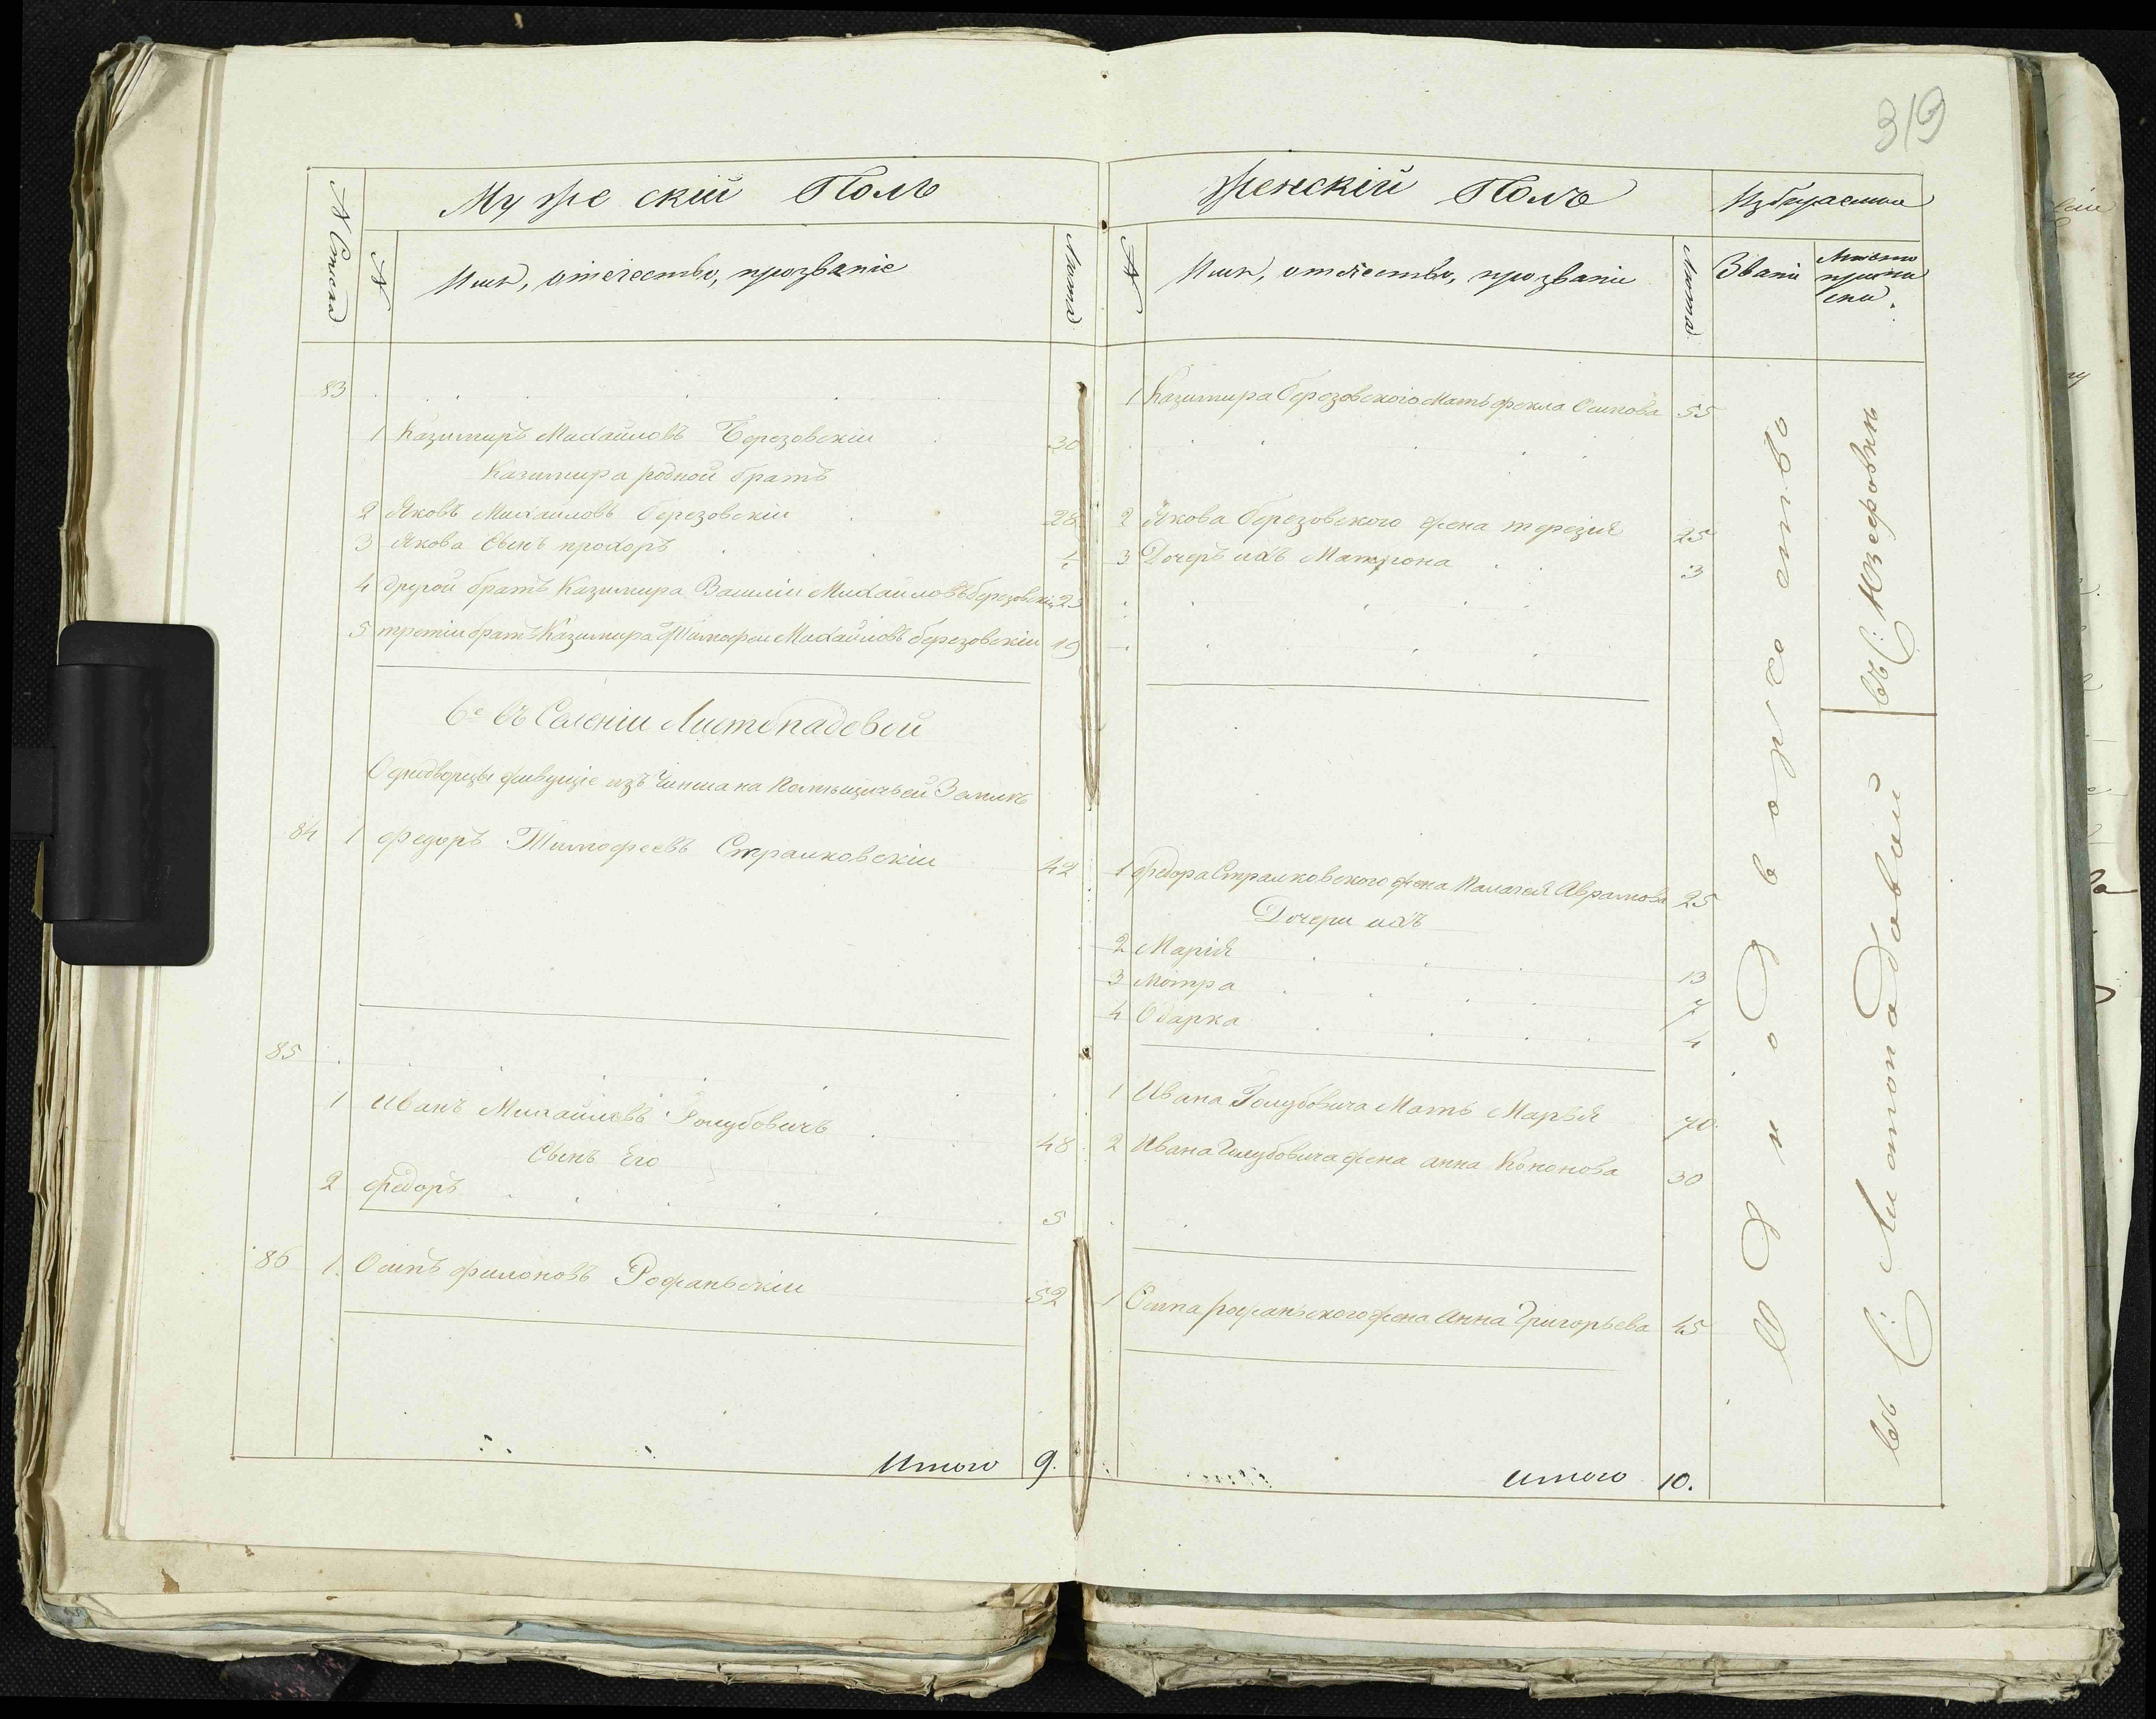 319
Мужескій Полъ
Женскій Полъ
Избираемыя
№ Списка
№
Имя, отечество, прозваніе
Лѣта
№
Имя, отчество, прозваніе
Лѣта
Званіе
Мѣсто
припи
ски.
83
1 Казимира Березовского Мать Фекла Осипова 55
1 Казимиръ Михайловъ Березовскій 30
Казимира родной братъ
2 Яковъ Михайловъ Березовскій 28
2 Якова Березовского жена терезія 25
3 Якова Сынъ прохоръ 1
3 Дочерь ихъ Матрона 3
4 другой братъ Казимира Василій Михайловъ березовскій 23
5 третій братъ Казимира Тимофей Михайловъ березовскій 19
6е въ Селеніи Листопадовой
Однодворцы живущіе изъ Чинша на Помѣщичьей Землѣ
84 1 Федоръ Тимофеевъ Страиковскій 42
1 Федора Страиковского жена Палагея Аврамова 25
Дочери ихъ
2 Марія 13
3 Мотра 7
4 Одарка 4
85
1 Ивана Голубовича Мать Марья 70
1 Иванъ Михайловъ Голубовичъ 48
2 Ивана Голубовича жена анна Кононова 30
Сынъ Его
2 Федоръ 5
86 1 Осипъ филоновъ Рожаньскій 52
1 Осипа рожаньского жена Анна Григорьева 45
Итого 9.
итого 10.
Однодворство
въ С: Юзефовкѣ
въ С: Листопадовки